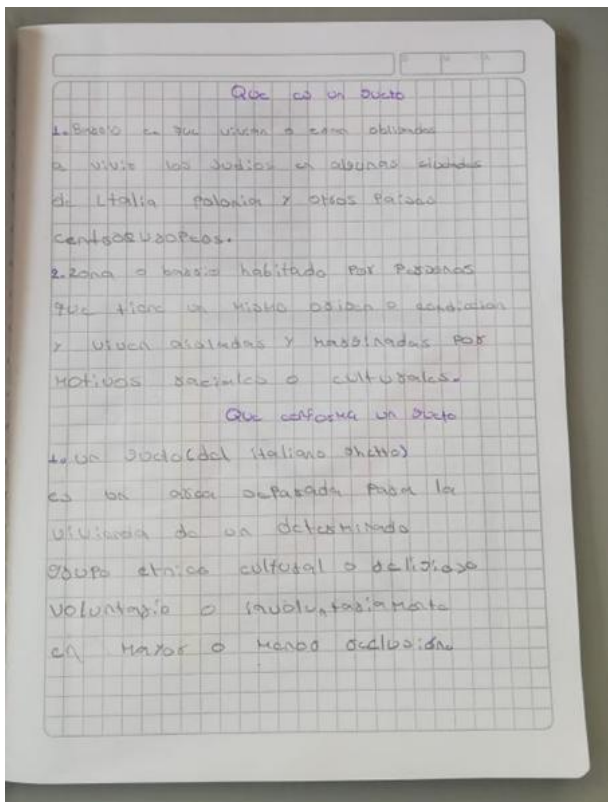 Que es un gueto
1. Barrio en que vivian o eran obligados
a vivir los judios en algunas ciudades
de Italia Polonia y otros Paises
centroeuropeos.
2. Zona o barrio habitado Por Personas
que tiene un Mismo origen o condicion
y viven aisladas y marginadas Por
Motivos raciales o culturales.
Que conforma un gueto
1. un gueto (del Italiano ghetto)
es un area separada Para la
vivienda de un determinado
grupo etnico cultural o religioso
voluntario o involuntariamente
en Mayor o Menor reclusion.